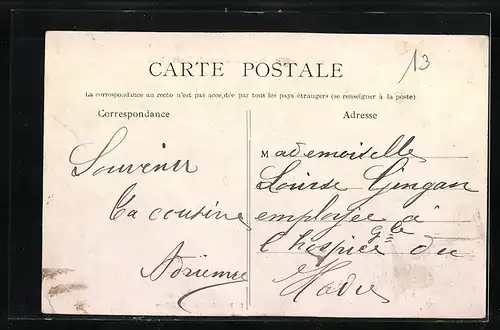 13
CARTE POSTALE
La correspondance au recto n'est pas acceptée par tous les pays étrangers (se renseigner à la poste)
Correspondance
Adresse
Souvenir
Ta cousine
Adrienne
Mademoiselle
Louise Gingan
employée à
l'hospice Gle du
Havre